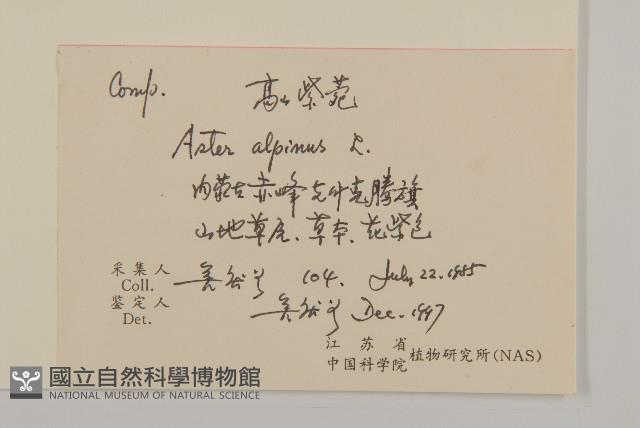 Comp. 高山紫菀
Aster alpinus L.
内蒙古赤峰克什克腾旗
山地草原、草本、花紫色
采集人
Coll. 104. July 22. 1985
鉴定人
Det. Dec. 1997
江苏省
中国科学院植物研究所(NAS)
國立自然科學博物館
NATIONAL MUSEUM OF NATURAL SCIENCE